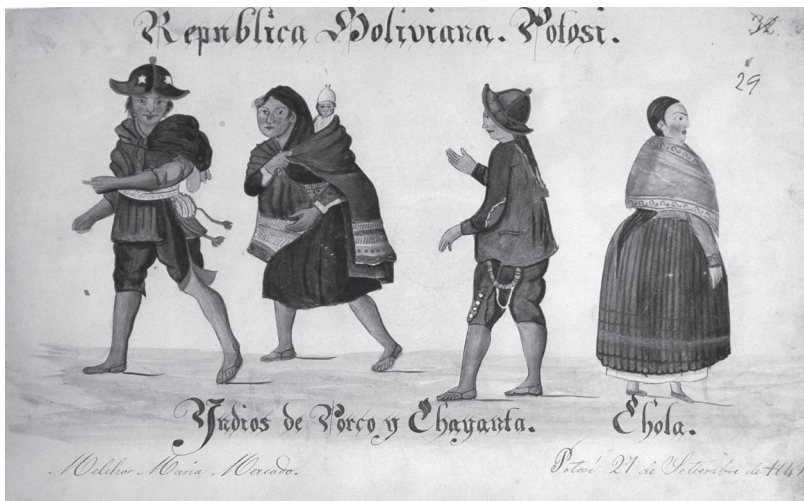 Republica Boliviana. Potosi.
32.
29
Yndios de Porco y Chayanta.
Chola.
Melchor Maria Mercado.
Potosí 27 de Setiembre de